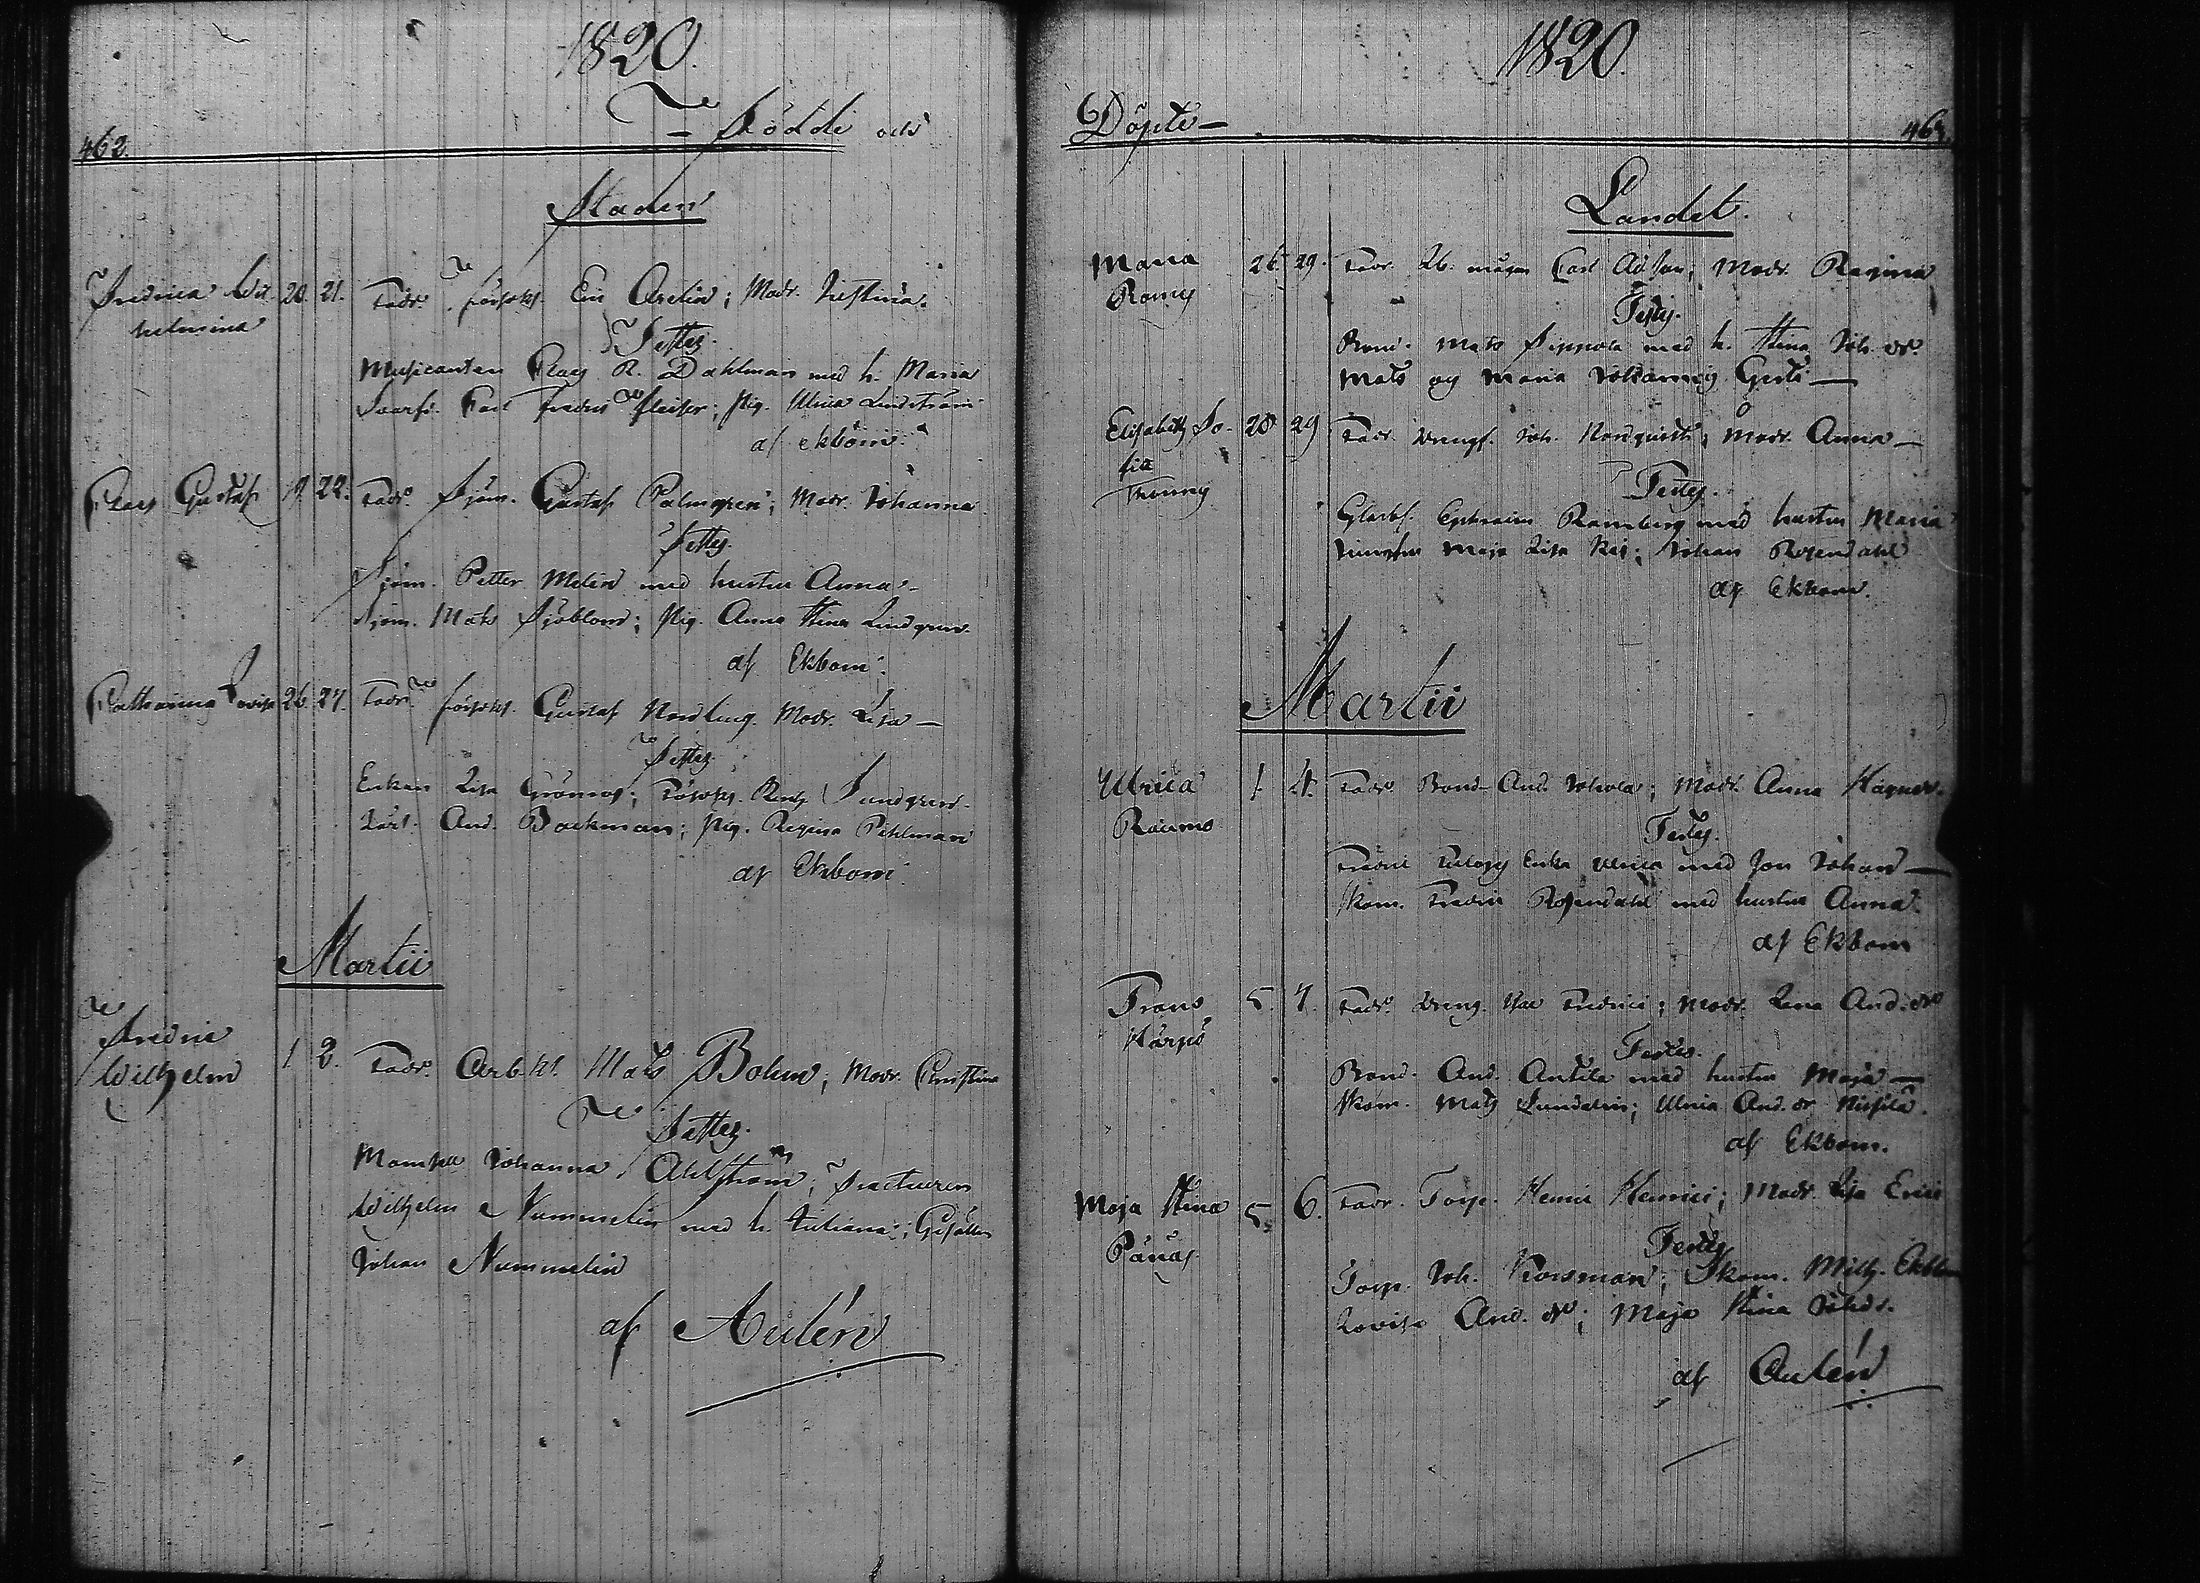 1820.
462.
Födde och
Staden
Fredrica Wil-
helmina
20. 21. Fadr. Förspkl. Eric Arelin; Modr. Justina.
Testes.
Musicanten Claes R. Dahlman med h. Maria
Svarfv. Carl Fredric; Pig. Ulrica Lindström
af Ekbom.
Claes Gustaf 19. 22. Fadr. Sjöm. Gustaf Palmgren; Modr. Johanna
Testes.
Sjöm. Petter Melin med hustru Anna.
Sjöm. Mats Sjöblom; Pig. Anna Stina Lindgren.
af Ekbom.
Catharina Lovisa 26. 27. Fadr. Förspkl. Gustaf Nordling. Modr. Lisa —
Testes
Enkan Lisa Grönroos; Förspkl. Sundgren.
Lärl. And. Backman; Pig. Regina Pihlman
af Ekbom.
Martii
Fredric
Wilhelm
1 2. Fadr. Arb.kl. Mats Bohm; Modr. Christina
Testes.
Mamsell Johanna Ahlström; Fracteuren
Wilhelm Nummelin med h. Juliana; Gesällen
Johan Nummelin
af Aulén
1820.
Döpte —
463.
Landet.
Maria
26. 29. Fadr. Carl Ad. son; Modr. Regina
Testes.
Bond. Mats Seppola med h. Stina Joh. dr.
Mats och Maria
Elisabeth So-
fia
28 29 Fadr. Drengf. Joh. Nordquist; Modr. Anna —
Testes.
Glasbl. Ephraim Ramberg med hustru Maria
Maja Lisa; Johan Rosendahl
af Ekbom.
Martii
Ulrica
Raumo
1. 4. Fadr. Bond. And. Johola; Modr. Anna
Testes.
Enka Ulrica med son Johan —
Skom. Fredric Rosendahl med hustru Anna.
af Ekbom
Frans
5. 7. Fadr. Dreng. Isac Fredrici; Modr. Lena And. dr
Testes.
Bond. And. Antila med hustru Maja —
Skom. Mats Sundelin; Ulrica And. dr
af Ekbom.
Maja Stina
Pänäs
5. 6. Fadr. Torp. Henric Henrici; Modr. Lisa Erici
Testes
Torp. Joh. Korsman; Skom. Mich. Ekblom
Lovisa And. dr; Maja Stina Joh. dr.
af Aulén